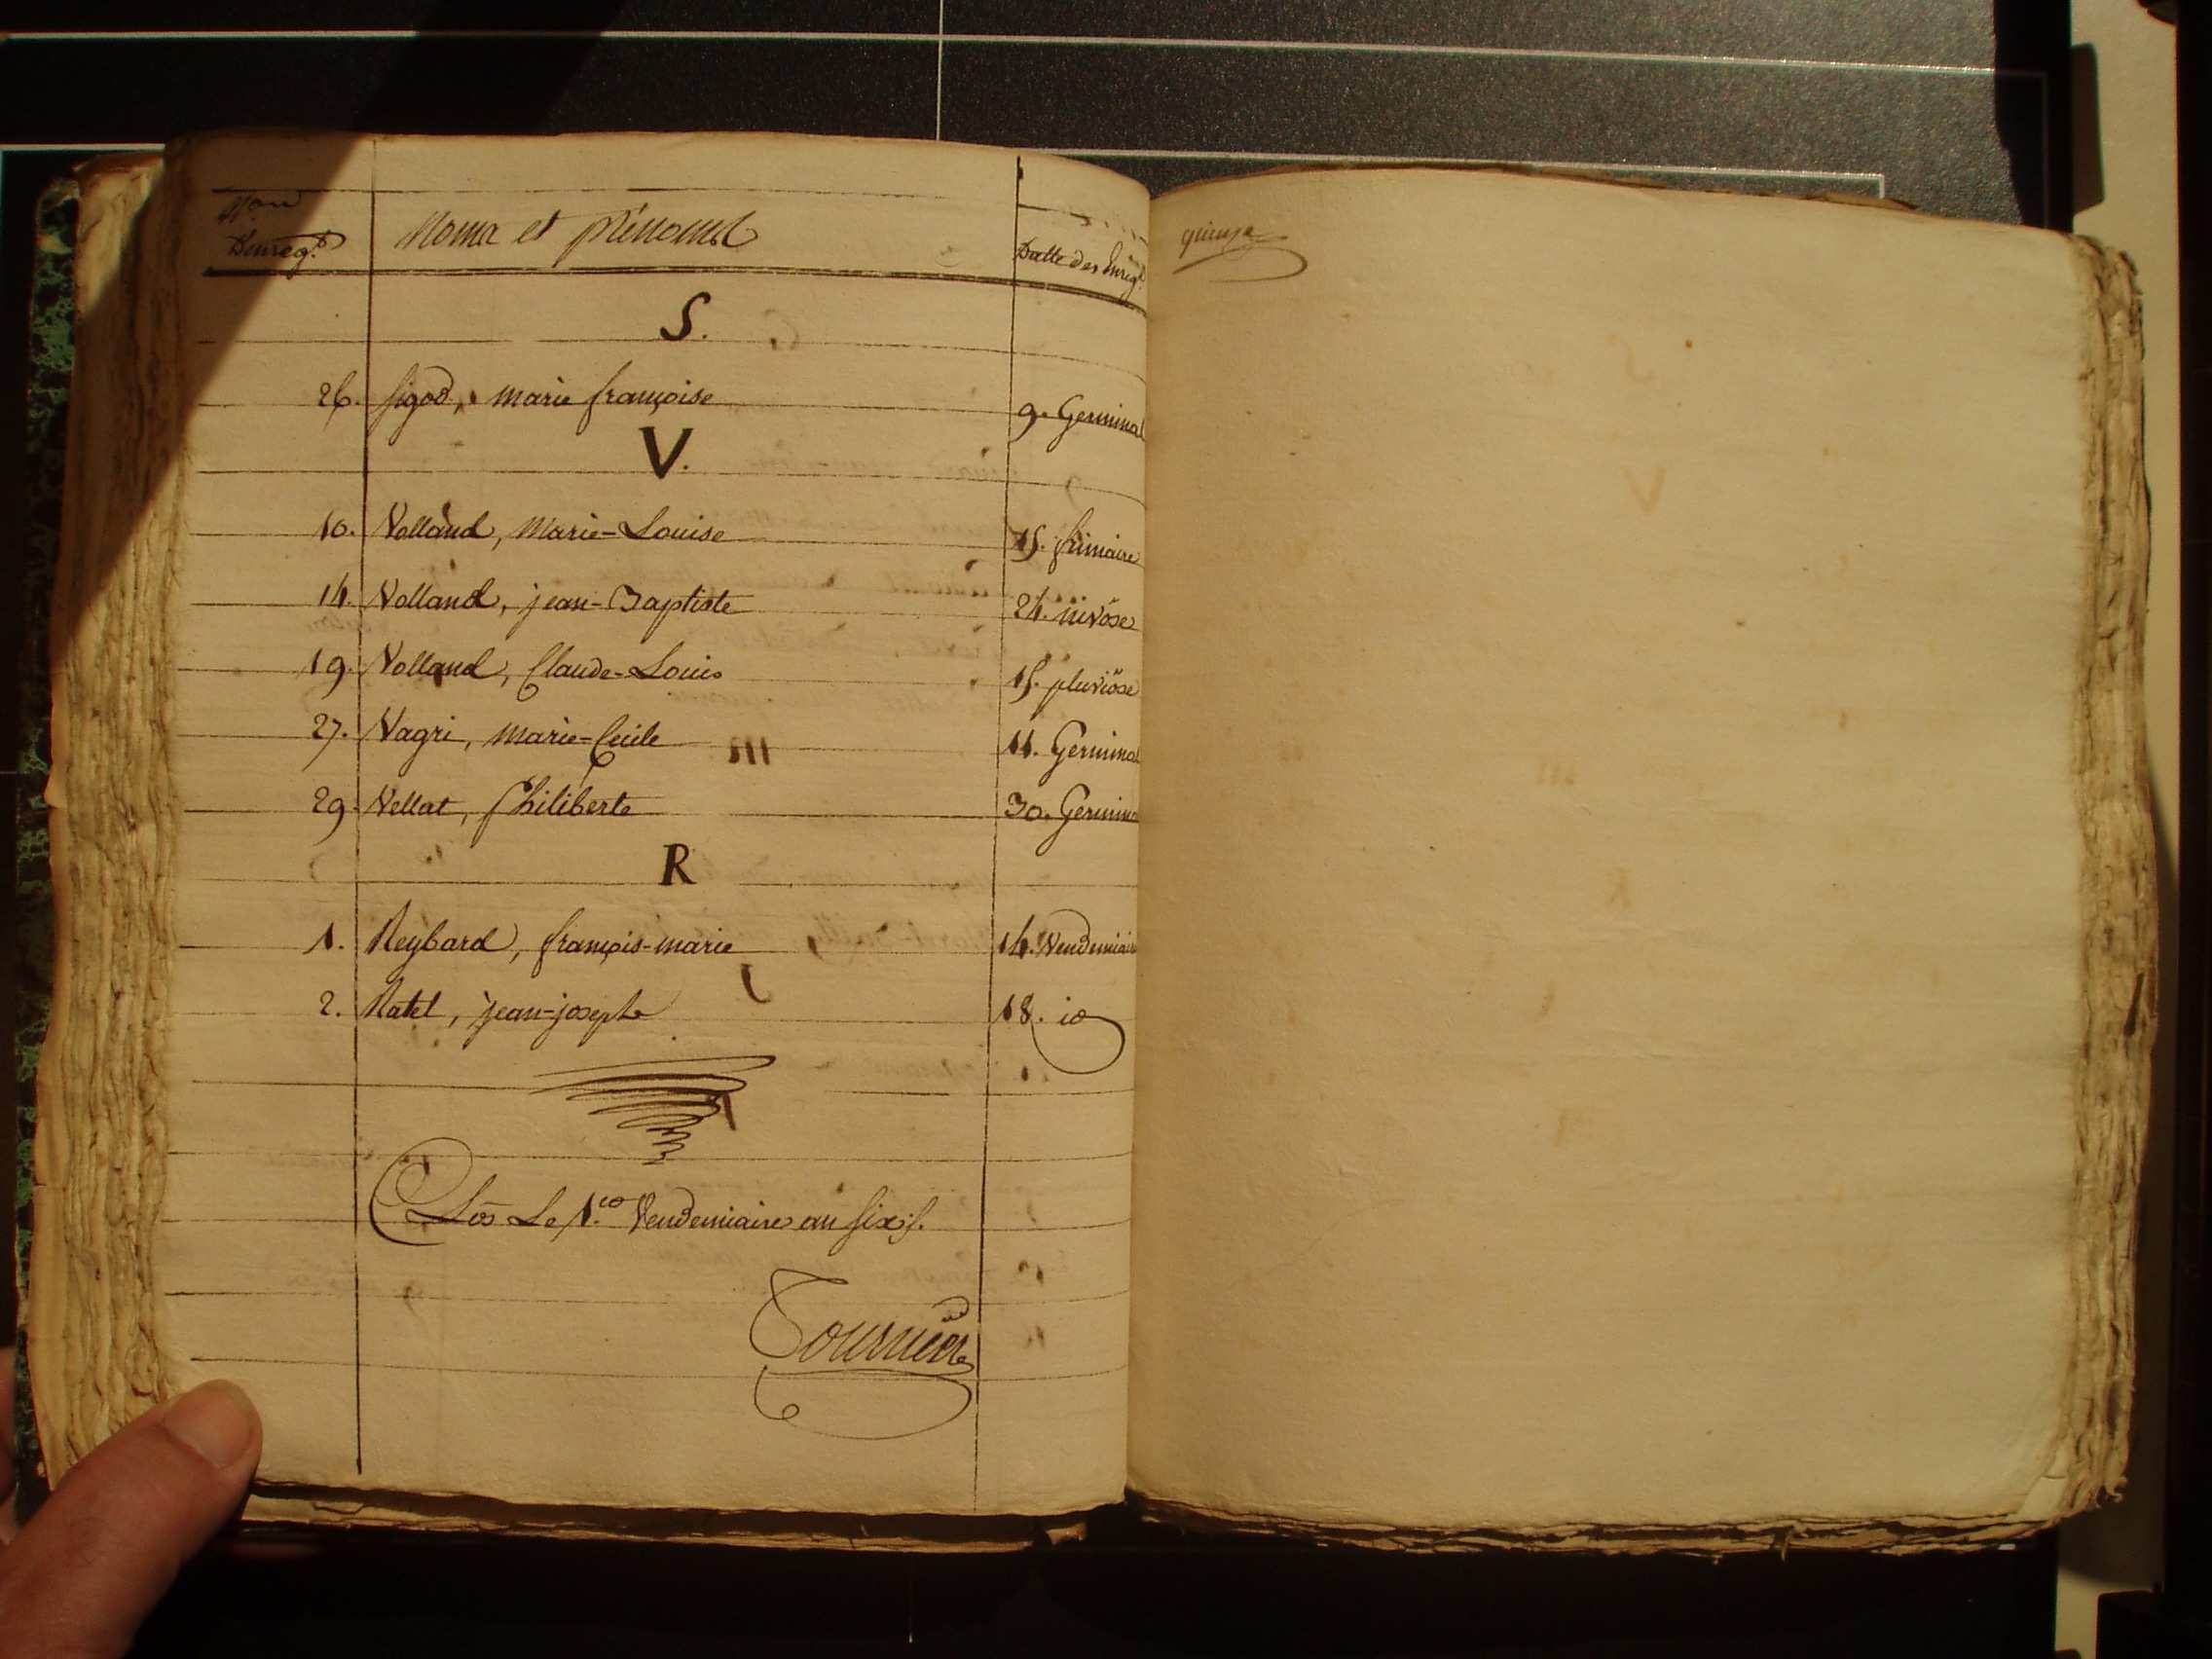 Nos
D'enreg.t
Noms et prénoms
Datte des Enreg.t
S.
26. Sigod, marie françoise 9. Germinal
V.
10. Volland, Marie-Louise 15. frimaire
14. Volland, jean-Baptiste 24. nivôse
19. Volland, Claude-Louis 15. pluviôse
27. Vagri, marie-Cécile 11. Germinal
29. Vellat, Philiberte 30. Germinal
R
1. Reybard, françois-marie 14. Vendemiaire
2. Ratel, jean-joseph 18. id
Clos Le 1.er Vendemiaire an six.
quinze